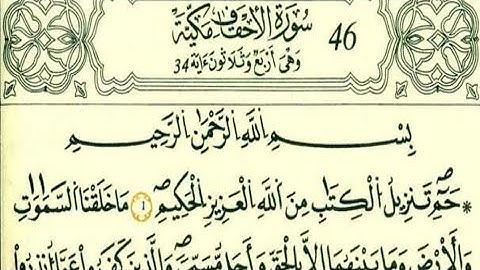 سُورَةُ الْأَحْقَافِ مَكِّيَّة 46
وَهْيَ أَرْبَعٌ وَثَلَاثُونَ ءَايَة 34
بِسْمِ اللَّهِ الرَّحْمَٰنِ الرَّحِيمِ
* حَمِٓ تَنزِيلُ الْكِتَٰبِ مِنَ اللَّهِ الْعَزِيزِ الْحَكِيمِ 1 مَا خَلَقْنَا السَّمَٰوَٰتِ
وَالْأَرْضَ وَمَا بَيْنَهُمَا إِلَّا بِالْحَقِّ وَأَجَلٍ مُّسَمًّى وَالَّذِينَ كَفَرُوا عَمَّا أُنذِرُوا